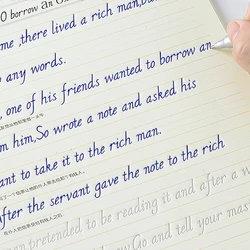 O borrow an Ox
me ,there lived a rich man,
any words.
one of his friends wanted to borrow an
m him,So wrote a note and asked his
ant to take it to the rich man.
fter the servant gave the note to the rich
an pretended to be reading it and after a w
ow.Go and tell your mast